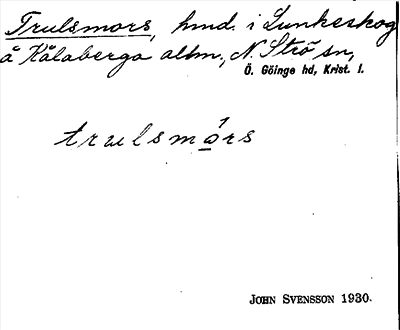 Trulsmors, hmd. i Lunkeskog
å Kålaberga allm., N. Strö sn,
Ö. Göinge hd, Krist. l.
trulsmórs
JOHN SVENSSON 1930.